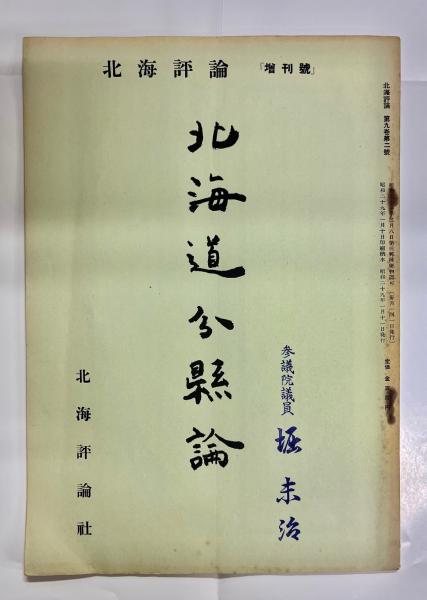 北海評論 「増刊號」
北海道分縣論
参議院議員 堀末治
北海評論社
北海評論 第九巻第二號
昭和二十九年一月十日印刷納本 昭和二十九年一月十一日発行
定価 金